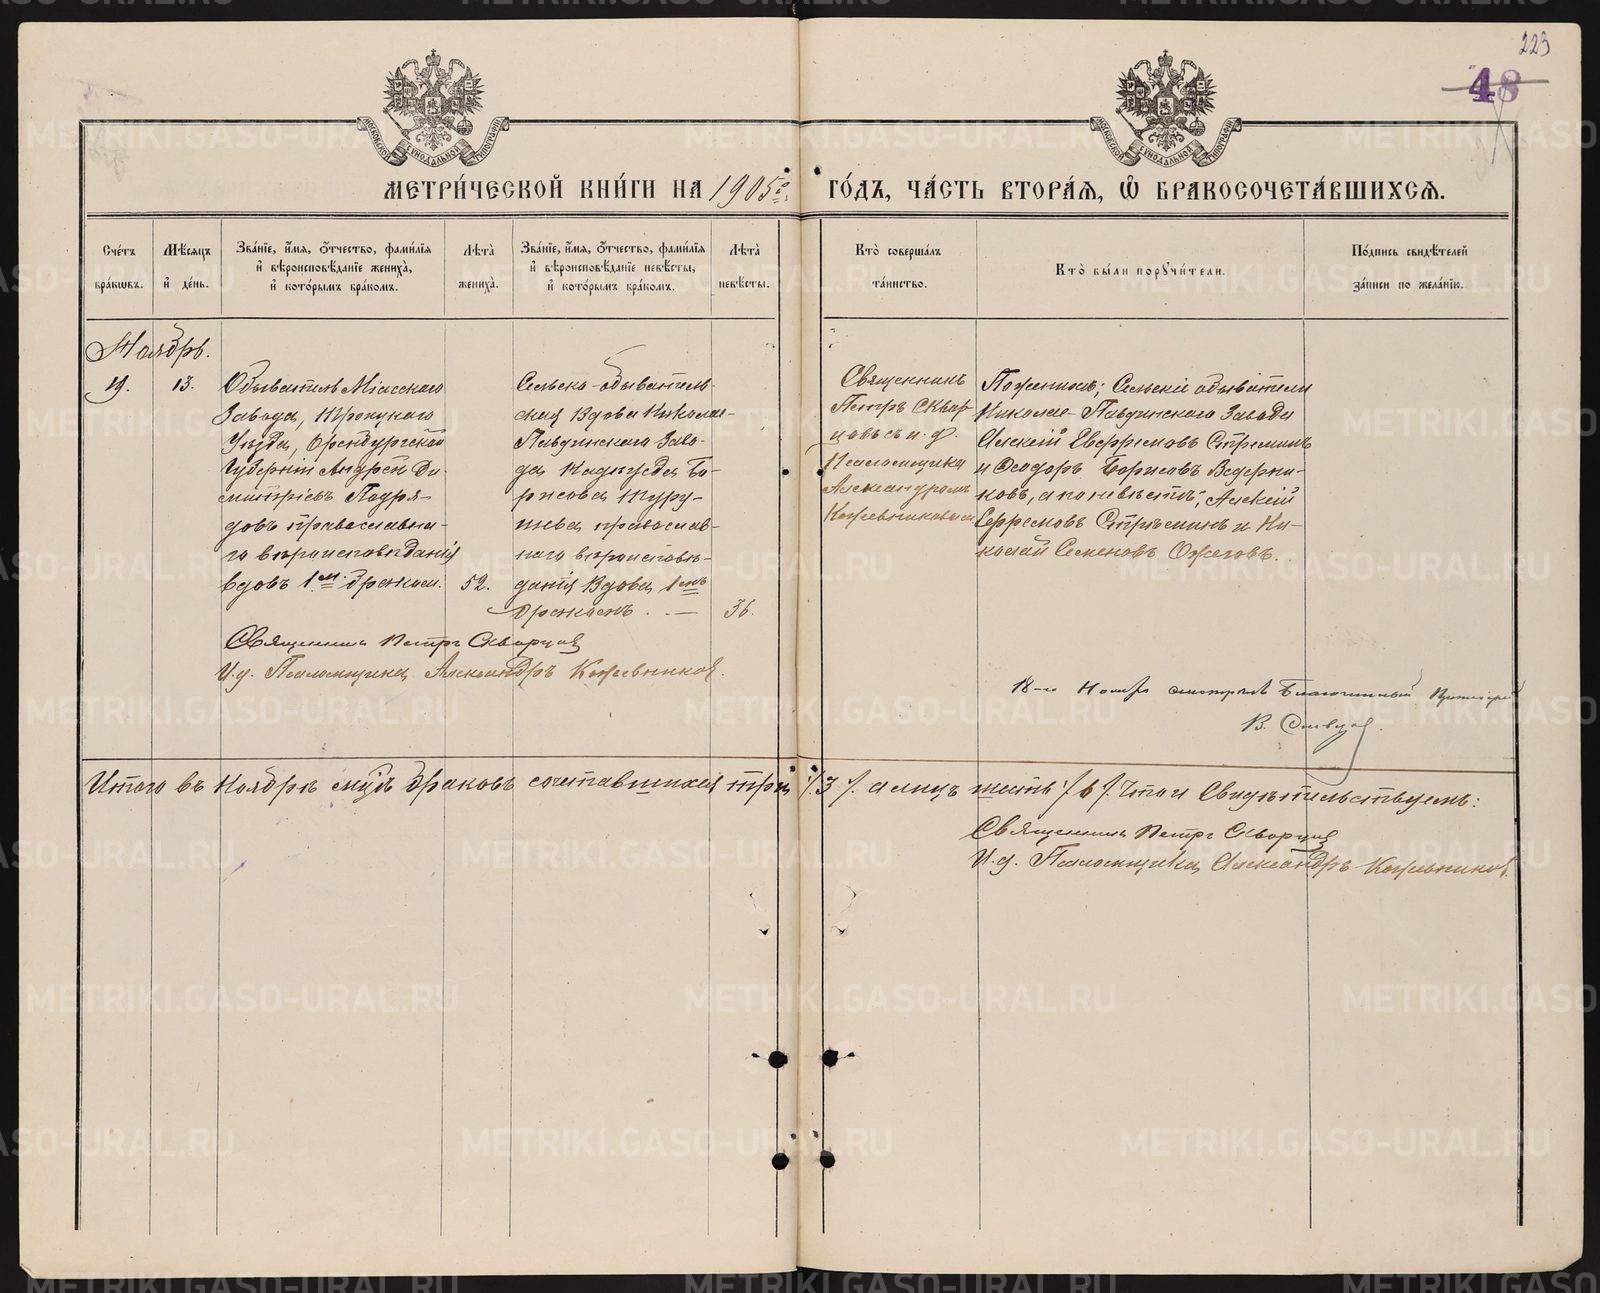 223
48
МОСКОВСКОЙ СѴНОДАЛЬНОЙ ТИПОГРАФІИ
МОСКОВСКОЙ СѴНОДАЛЬНОЙ ТИПОГРАФІИ
МЕТРИ́ЧЕСКОЙ КНИ́ГИ НА 1905 й
ГО́ДЪ, ЧА́СТЬ ВТОРА́Я, Ѿ БРАКОСОЧЕТА́ВШИХСЯ.
Сче́тъ бра́кωвъ.
Мѣ́сяцъ и҆ де́нь.
Зва́нїе, и҆́мя, ѻ҆́тчество, фами́лїя и҆ вѣроисповѣ́данїе жениха̀, и҆ кото́рымъ бра́комъ.
Лѣта̀ жениха̀.
Зва́нїе, и҆́мя, ѻ҆́тчество, фами́лїя и҆ вѣроисповѣ́данїе невѣ́сты, и҆ кото́рымъ бра́комъ.
Лѣта̀ невѣ́сты.
Кто̀ соверша́лъ та́инство.
Кто̀ бы́ли порꙋчи́тели.
По́дпись свидѣ́телей за́писи по жела́нїю.
Ноябрь.
19.
13.
Обыватель Міасскаго
Завода, Троицкаго
Уѣзда, Оренбургской
Губерніи Андрей Ди-
митріевъ Подря-
довъ православна-
го вѣроисповѣданія
вдовъ 1м. бракомъ.
52.
Сельско-обыватель-
ская Вдова Николае-
Павдинскаго Заво-
да Надежда Бо-
рисова
православ-
наго вѣроисповѣ-
данія Вдова 1мъ
бракомъ. —
36.
Священникъ
Петръ Сквор
цовъ съ и. д.
Псаломщика
Александромъ
Кожевниковым
По женихѣ; Сельскіе обыватели
Николае-Павдинскаго Завода
Алексій Евфремовъ Стреминъ
и Ѳеодоръ Борисовъ Ведерни-
ковъ, а по невѣстѣ; Алексій
Ефремовъ Стрѣминъ и Ни-
колай Семеновъ Ожеговъ.
Священникъ Петръ Скворцов
И. д. Псаломщика Александръ Кожевников.
18-го Ноября смотрѣлъ Благочинный Протоіерей
В.
Итого въ Ноябрѣ мцѣ браковъ сочетавшихся три /.3 /. а лицъ шесть /. 6 /. Что и Свидѣтельствуемъ:
Священникъ Петръ Скворцов
И. д. Псаломщика Александръ Кожевников.
METRIKI.GASO-URAL.RU